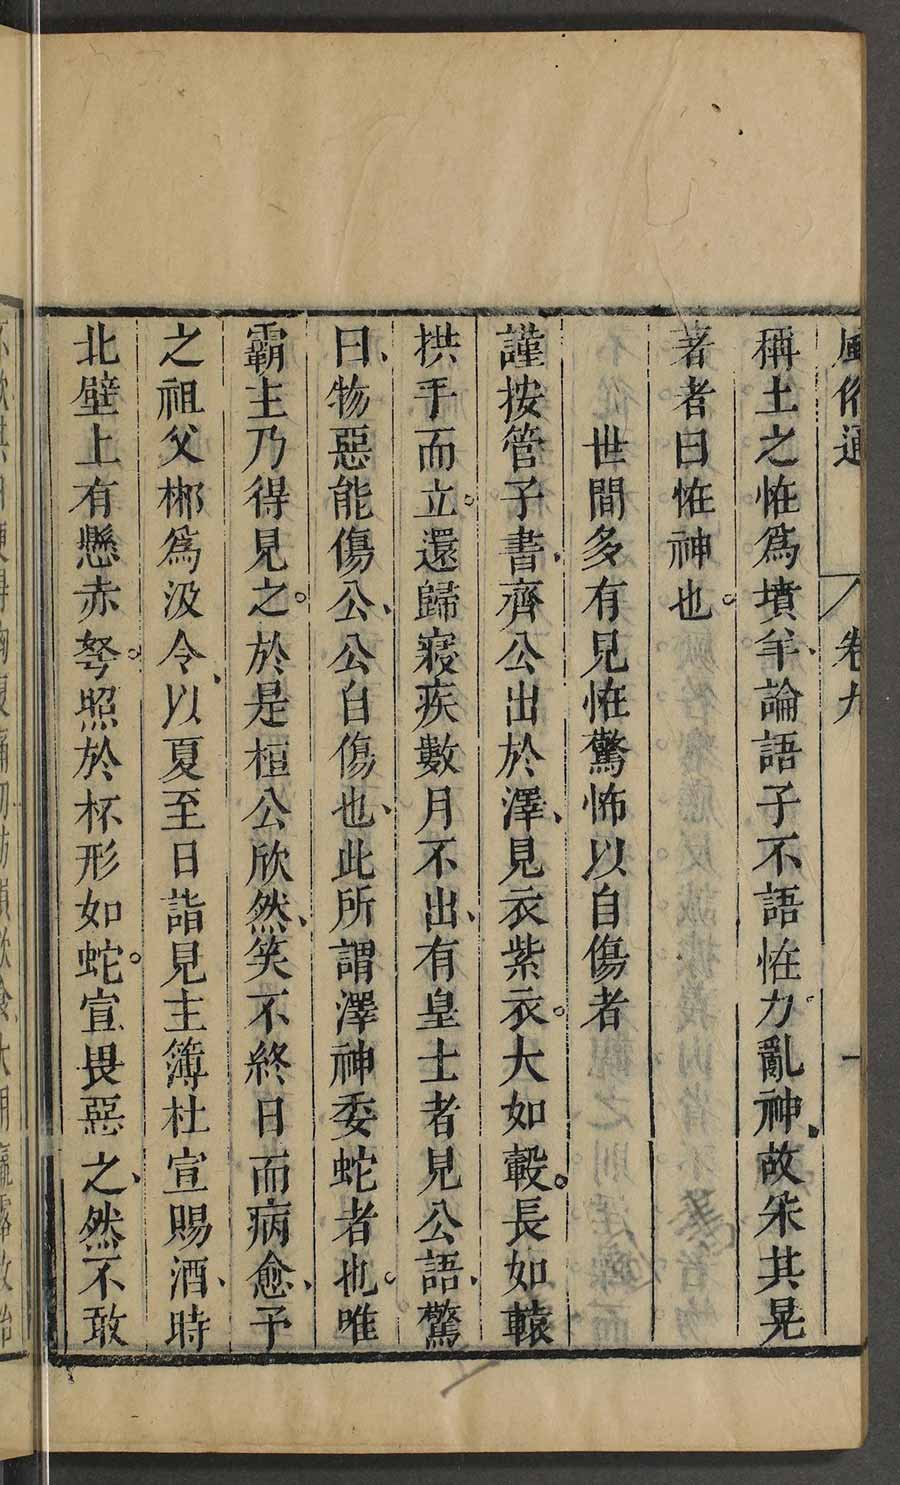 風俗通 卷九 一
稱土之恠爲墳羊、論語子不語恠力亂神、故朱其晃
著者曰恠神也。
世間多有見恠驚怖以自傷者
謹按管子書、齊公出於澤、見衣紫衣。大如轂。長如轅
拱手而立。還歸寢疾數月不出、有皇士者見公語、驚
曰、物惡能傷公、公自傷也、此所謂澤神委蛇者也。唯
霸主乃得見之。於是桓公欣然、笑不終日而病愈、予
之祖父郴爲汲令、以夏至日詣見主簿杜宣賜酒、時
北壁上有懸赤弩。照於杯形如蛇。宣畏惡之、然不敢